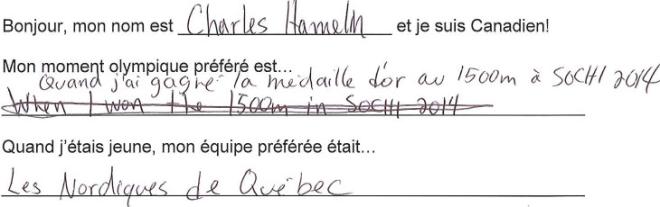 Bonjour, mon nom est Charles Hamelin et je suis Canadien!
Mon moment olympique préféré est...
Quand j'ai gagné la médaille d'or au 1500m à SOCHI 2014
When I won the 1500m in SOCHI 2014
Quand j'étais jeune, mon équipe préférée était...
Les Nordiques de Québec